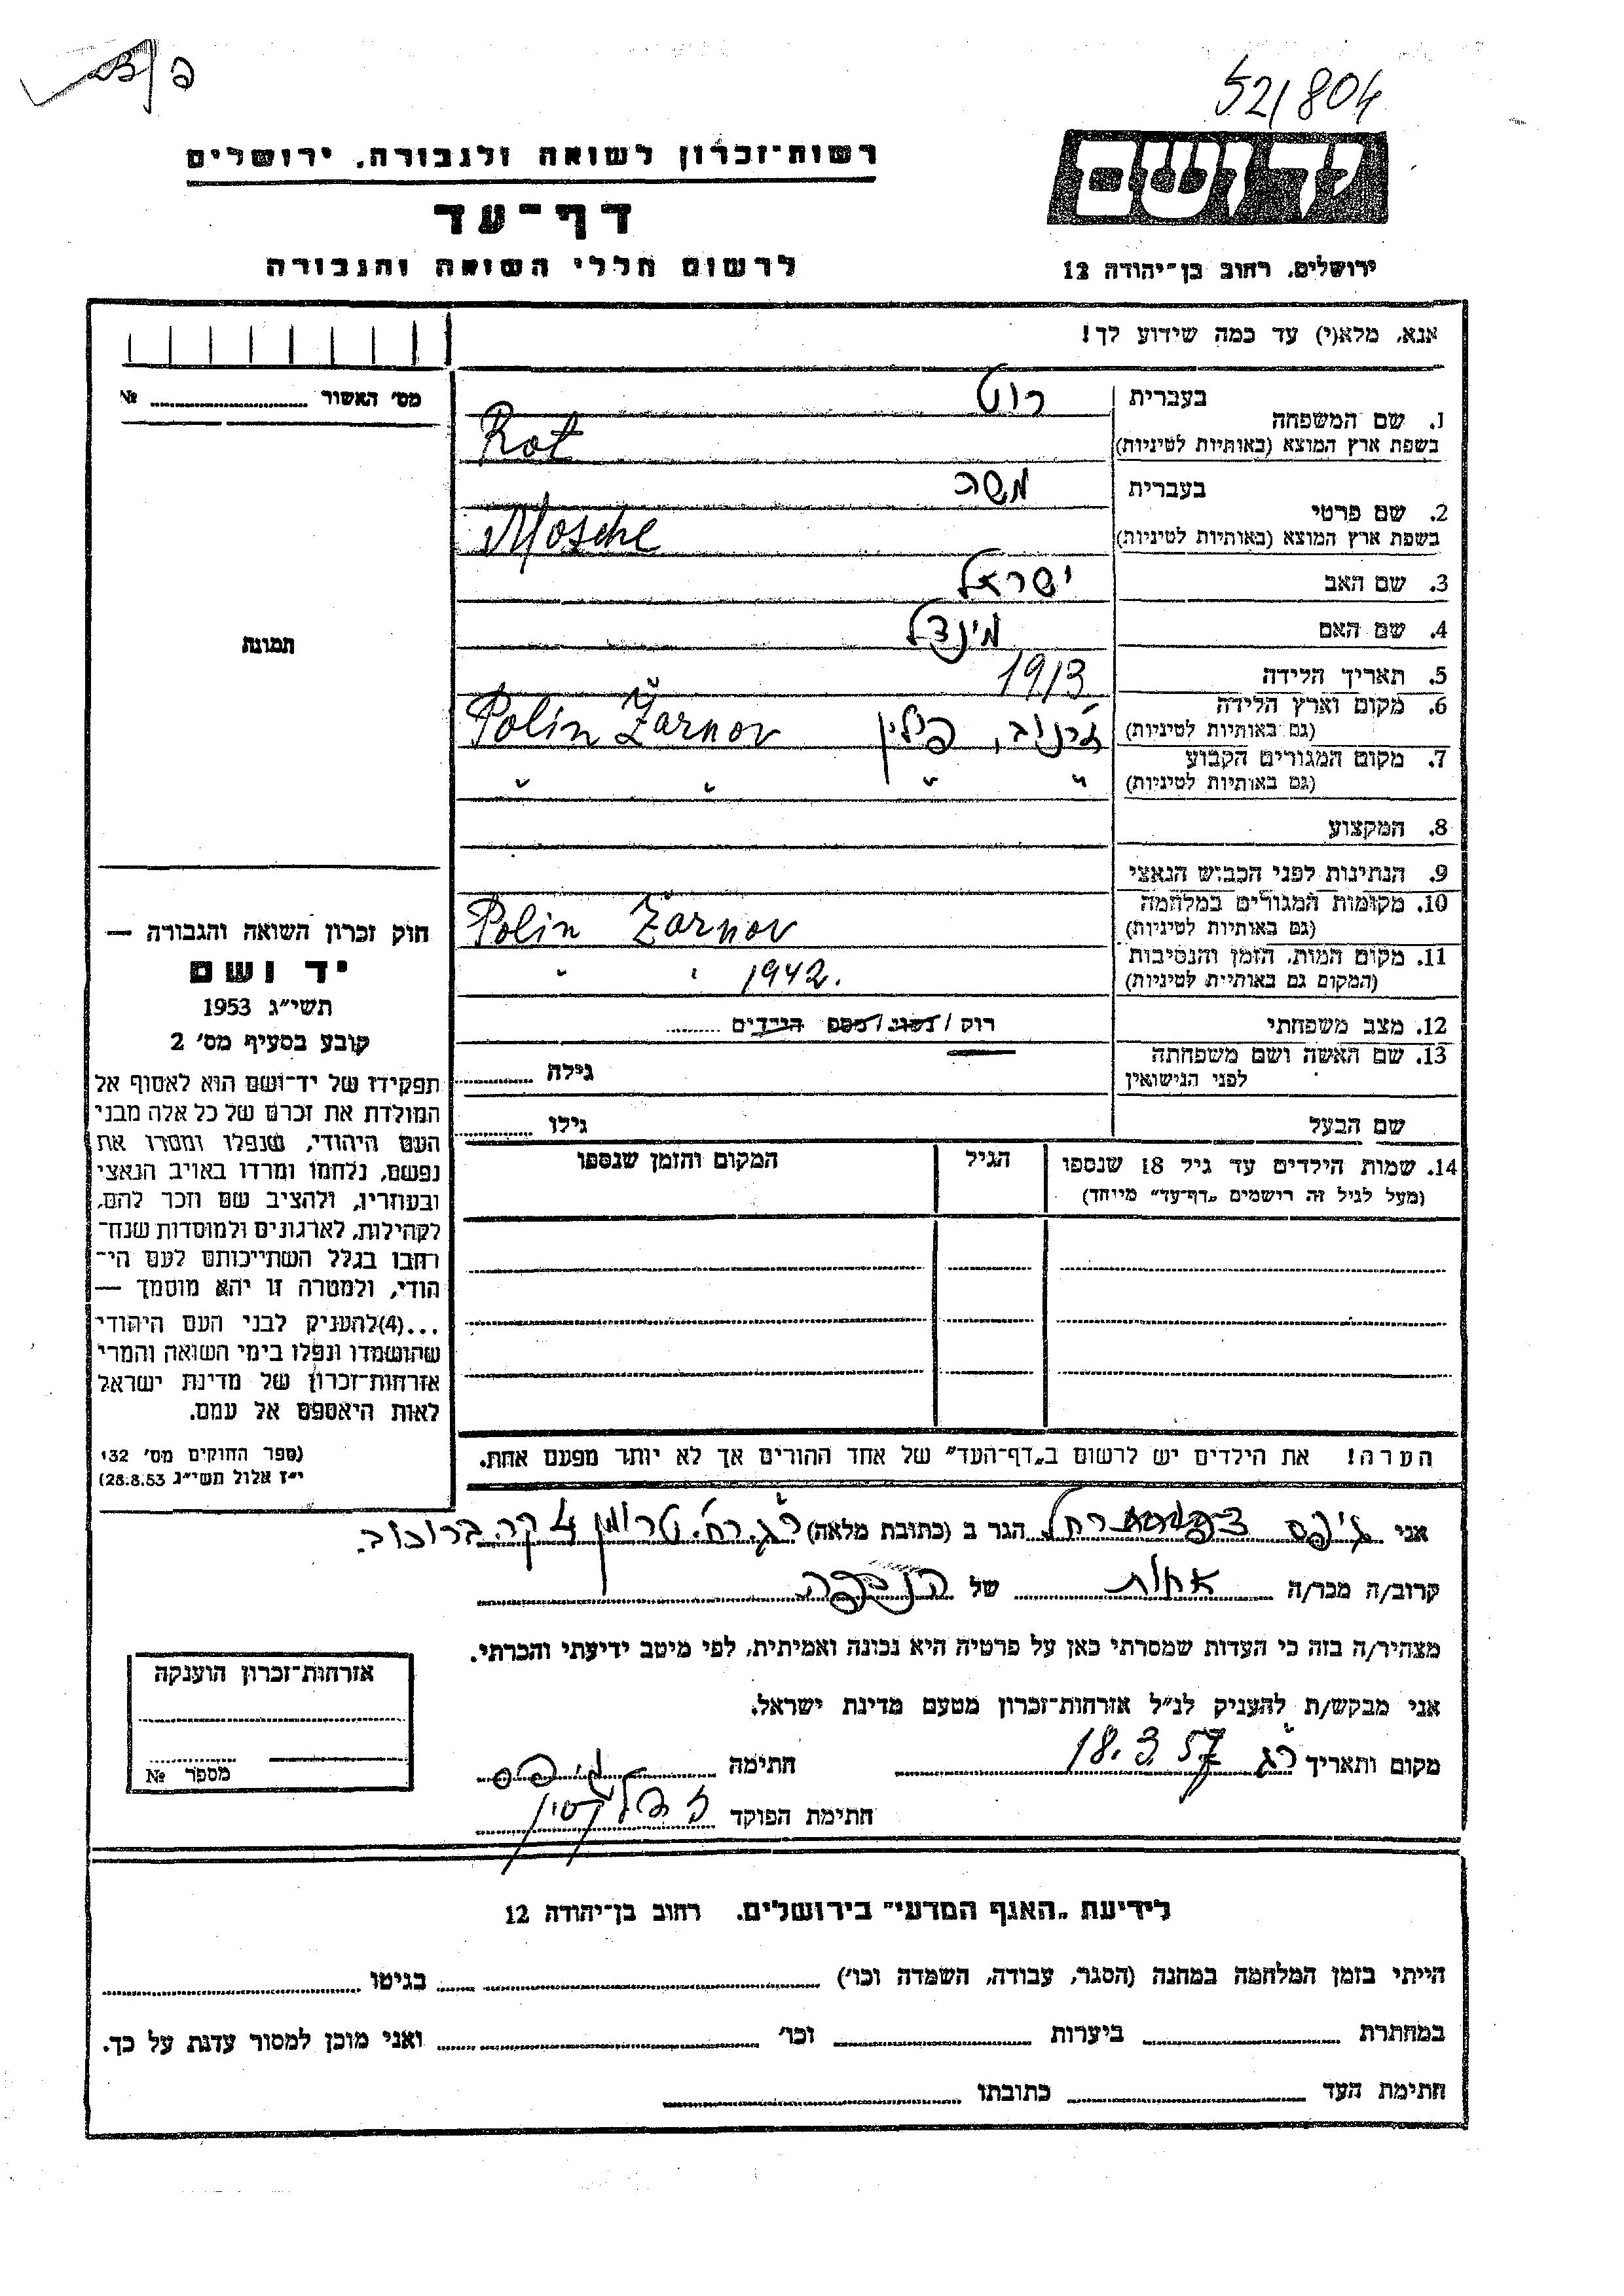 52/804
יד ושם
רשות־זכרון לשואה ולגבורה, ירושלים
דף־עד
לרשום חללי השואה והגבורה
ירושלים, רחוב בן־יהודה 12
אנא, מלא(י) עד כמה שידוע לך!
מס' האשור № 
1. שם המשפחה
בעברית רוט
בשפת ארץ המוצא (באותיות לטיניות) Rot
2. שם פרטי
בעברית משה
בשפת ארץ המוצא (באותיות לטיניות) Mosche
3. שם האב ישראל
4. שם האם מינדל
5. תאריך הלידה 1913
6. מקום וארץ הלידה
(גם באותיות לטיניות) ז'רנוב, פולין Polin Žarnov
7. מקום המגורים הקבוע
(גם באותיות לטיניות) " " " "
8. המקצוע
9. הנתינות לפני הכבוש הנאצי
10. מקומות המגורים במלחמה
(גם באותיות לטיניות) Polin Žarnov
11. מקום המות, הזמן והנסיבות
(המקום גם באותיות לטיניות) " " 1942.
12. מצב משפחתי רווק / נשוי / מספר הילדים
13. שם האשה ושם משפחתה
לפני הנישואין גילה
שם הבעל גילו
14. שמות הילדים עד גיל 18 שנספו
(מעל לגיל זה רישמים „דף־עד” מיוחד)
הגיל
המקום והזמן שנספו
הערה! את הילדים יש לרשום ב„דף־העד” של אחד ההורים אך לא יותר מפעם אחת.
תמונה
חוק זכרון השואה והגבורה —
יד ושם
תשי״ג 1953
קובע בסעיף מס' 2
תפקידו של יד־ושם הוא לאסוף אל
המולדת את זכרם של כל אלה מבני
העם היהודי, שנפלו ומסרו את
נפשם, נלחמו ומרדו באויב הנאצי
ובעוזריו, ולהציב שם וזכר להם,
לקהילות, לארגונים ולמוסדות שנח־
רבו בגלל השתייכותם לעם הי־
הודי, ולמטרה זו יהא מוסמך —
...(4)להעניק לבני העם היהודי
שהושמדו ונפלו בימי השואה והמרי
אזרחות־זכרון של מדינת ישראל
לאות היאספם אל עמם.
(ספר החוקים מס' 132
י״ז אלול תשי״ג 28.8.53)
אני רחל הגר ב (כתובת מלאה) ר״ג רח' טרומן 4 קר. ברוכוב.
קרוב/ה מכר/ה אחות של הנספה
מצהיר/ה בזה כי העדות שמסרתי כאן על פרטיה היא נכונה ואמיתית, לפי מיטב ידיעתי והכרתי.
אני מבקש/ת להעניק לנ״ל אזרחות־זכרון מטעם מדינת ישראל.
מקום ותאריך ר״ג 18.3.57 חתימה
חתימת הפוקד
אזרחות־זכרון הוענקה
מספר №
לידיעת „האגף המדעי” בירושלים, רחוב בן־יהודה 12
הייתי בזמן המלחמה במחנה (הסגר, עבודה, השמדה וכו') בגיטו
במחתרת ביערות וכו' ואני מוכן למסור עדות על כך.
חתימת העד כתובתו